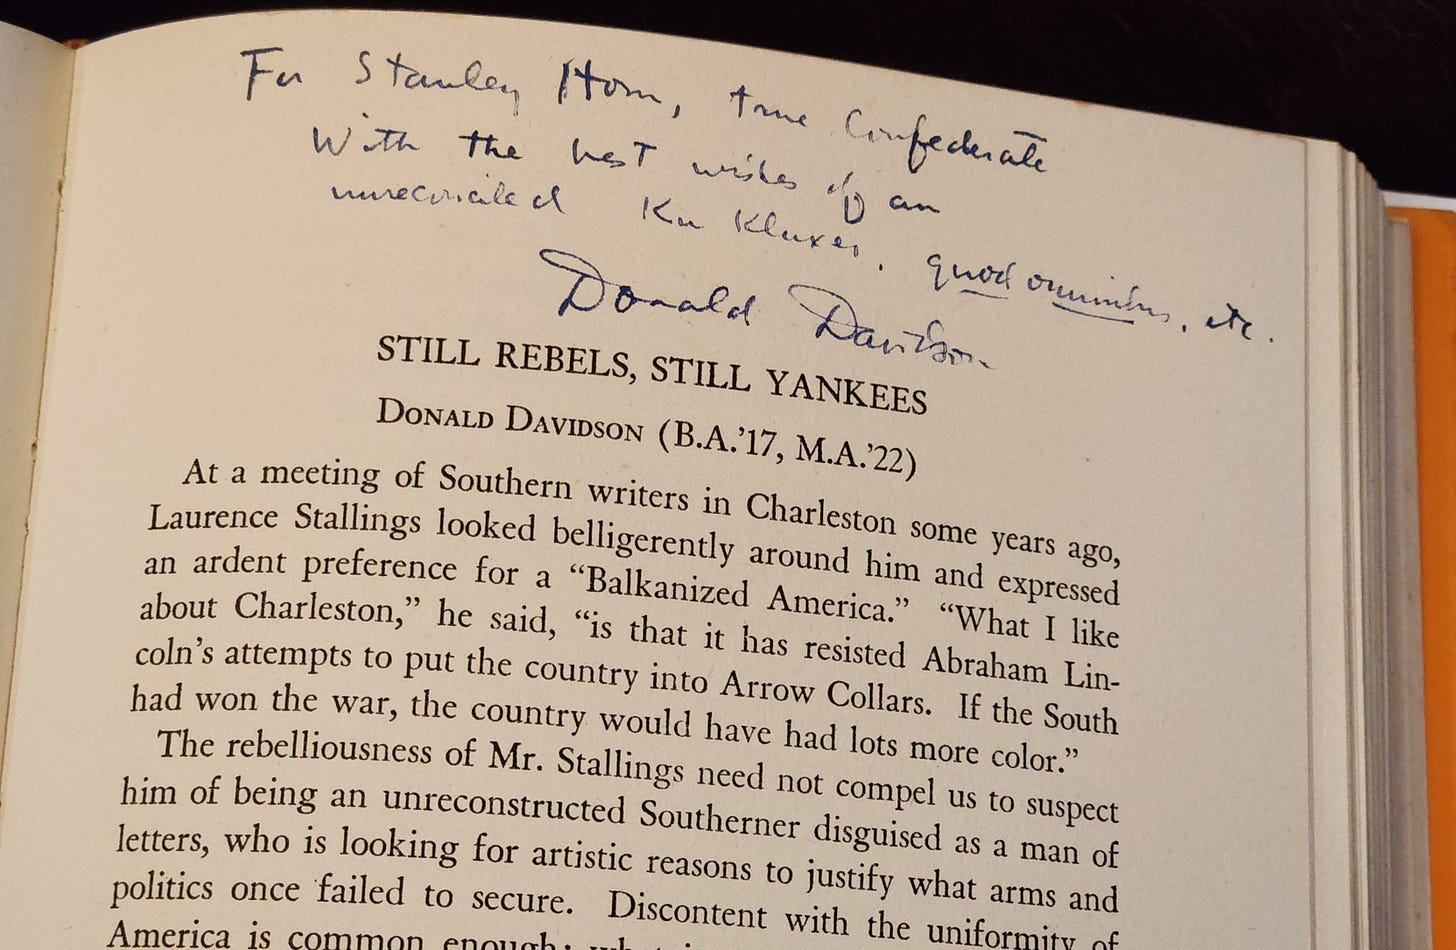 For Stanley Horn, true Confederate
With the best wishes of an
unreconciled Ku Kluxer, quod ominibus, etc.
Donald Davidson
STILL REBELS, STILL YANKEES
DONALD DAVIDSON (B.A.'17, M.A.'22)
At a meeting of Southern writers in Charleston some years ago,
Laurence Stallings looked belligerently around him and expressed
an ardent preference for a “Balkanized America.” “What I like
about Charleston,” he said, “is that it has resisted Abraham Lin-
coln’s attempts to put the country into Arrow Collars. If the South
had won the war, the country would have had lots more color.”
The rebelliousness of Mr. Stallings need not compel us to suspect
him of being an unreconstructed Southerner disguised as a man of
letters, who is looking for artistic reasons to justify what arms and
politics once failed to secure. Discontent with the uniformity of
America is common enough;